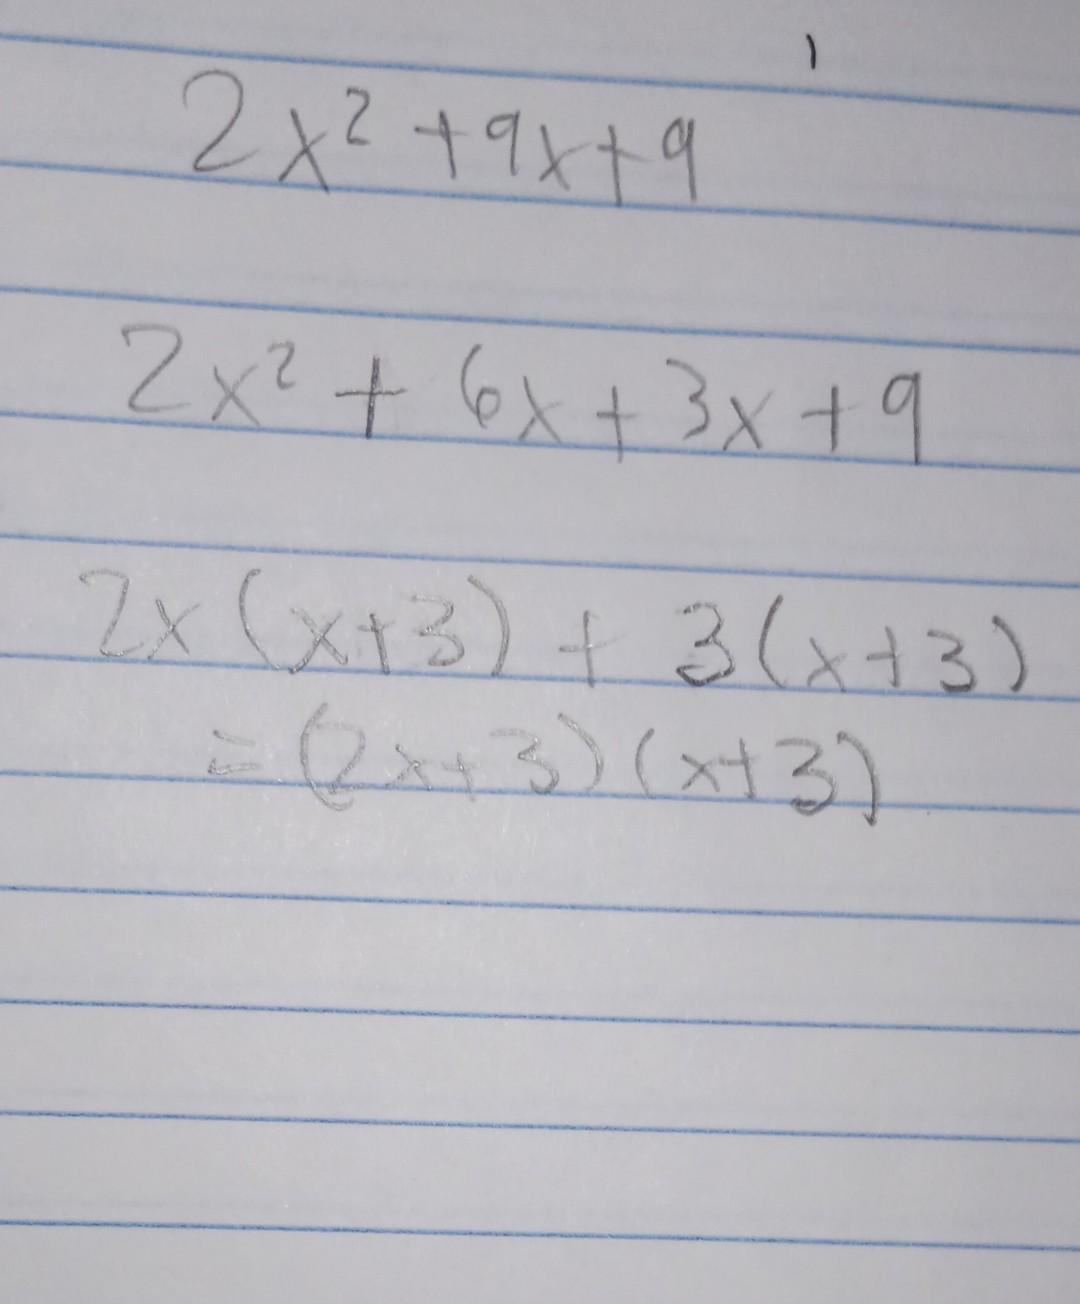 2x² + 9x + 9
2x² + 6x + 3x + 9
2x (x+3) + 3(x+3)
= (2x+3)(x+3)